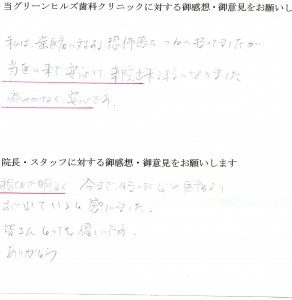 当グリーンヒルズ歯科クリニックに対する御感想・御意見をお願いし
私は、歯医者に対する恐怖感を つねに持ってましたが
当医に来て 安心して 来院出来るようになりました
痛みがなく、安心です。
院長・スタッフに対する御感想・御意見をお願いします
親切で明るく 今まで、行ったどの医者より
すぐれていると 感じました。
皆さん とっても 優しいです。
ありがとう